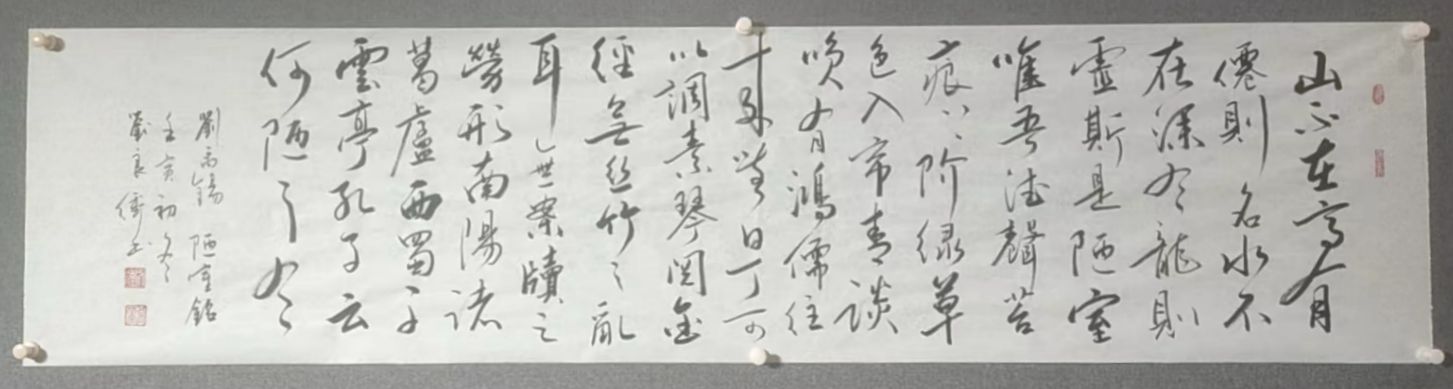 山不在高有
僊則名水不
在深有龍則
靈斯是陋室
唯吾德馨苔
痕上阶緑草
色入帘青談
笑有鴻儒往
来無白丁可
以調素琴閲金
經無丝竹之亂
耳無案牘之
勞形南陽諸
葛廬西蜀子
雲亭孔子云
何陋之有
劉禹錫 陋室銘
壬寅初冬
劉良衡书